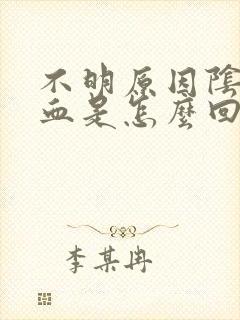 不明原因陰
血是怎麼回
李某冉